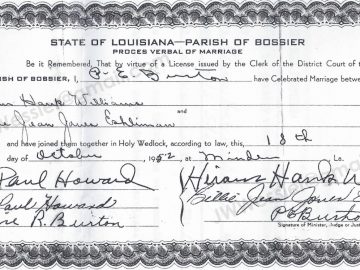 STATE OF LOUISIANA—PARISH OF BOSSIER
PROCES VERBAL OF MARRIAGE
Be it Remembered, That by virtue of a License issued by the Clerk of the District Court of th
RISH OF BOSSIER, I, P. E. Burton have Celebrated Marriage between
Hank Williams
and
Jean Jones Eshliman
and have joined them together in Holy Wedlock, according to law, this 18th
day of October 1952 at Minden La
Paul Howard Hiram Hank W
Paul Howard Billie Jean Jones E
R. Burton P E Burton
Signature of Minister, Judge or Just